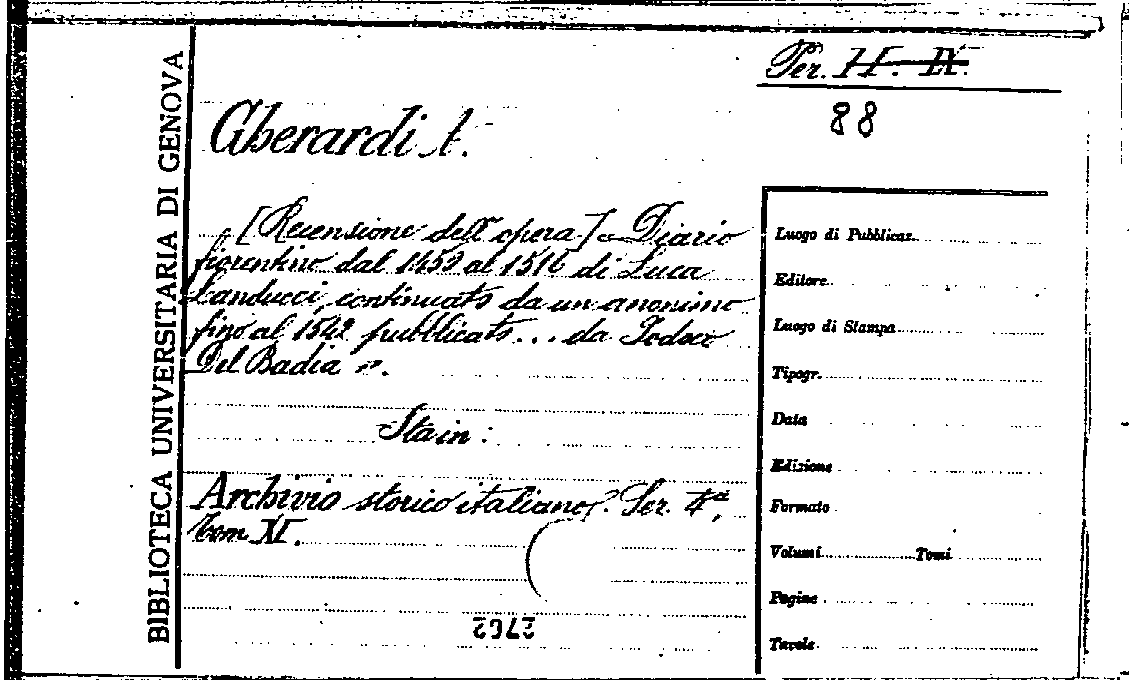 BIBLIOTECA UNIVERSITARIA DI GENOVA
Per. II. IX.
88
Gherardi A.
[Recensione dell'opera] « Diario
fiorentino dal 1450 al 1516 di Luca
Landucci, continuato da un anonimo
fino al 1542 pubblicato... da Jodoco
Del Badia ».
Sta in:
Archivio storico italiano. Ser. 4ª,
Tom XI.
2762
Luogo di Pubblicaz.
Editore
Luogo di Stampa
Tipogr.
Data
Edizione
Formato
Volumi Tomi
Pagine
Tavole